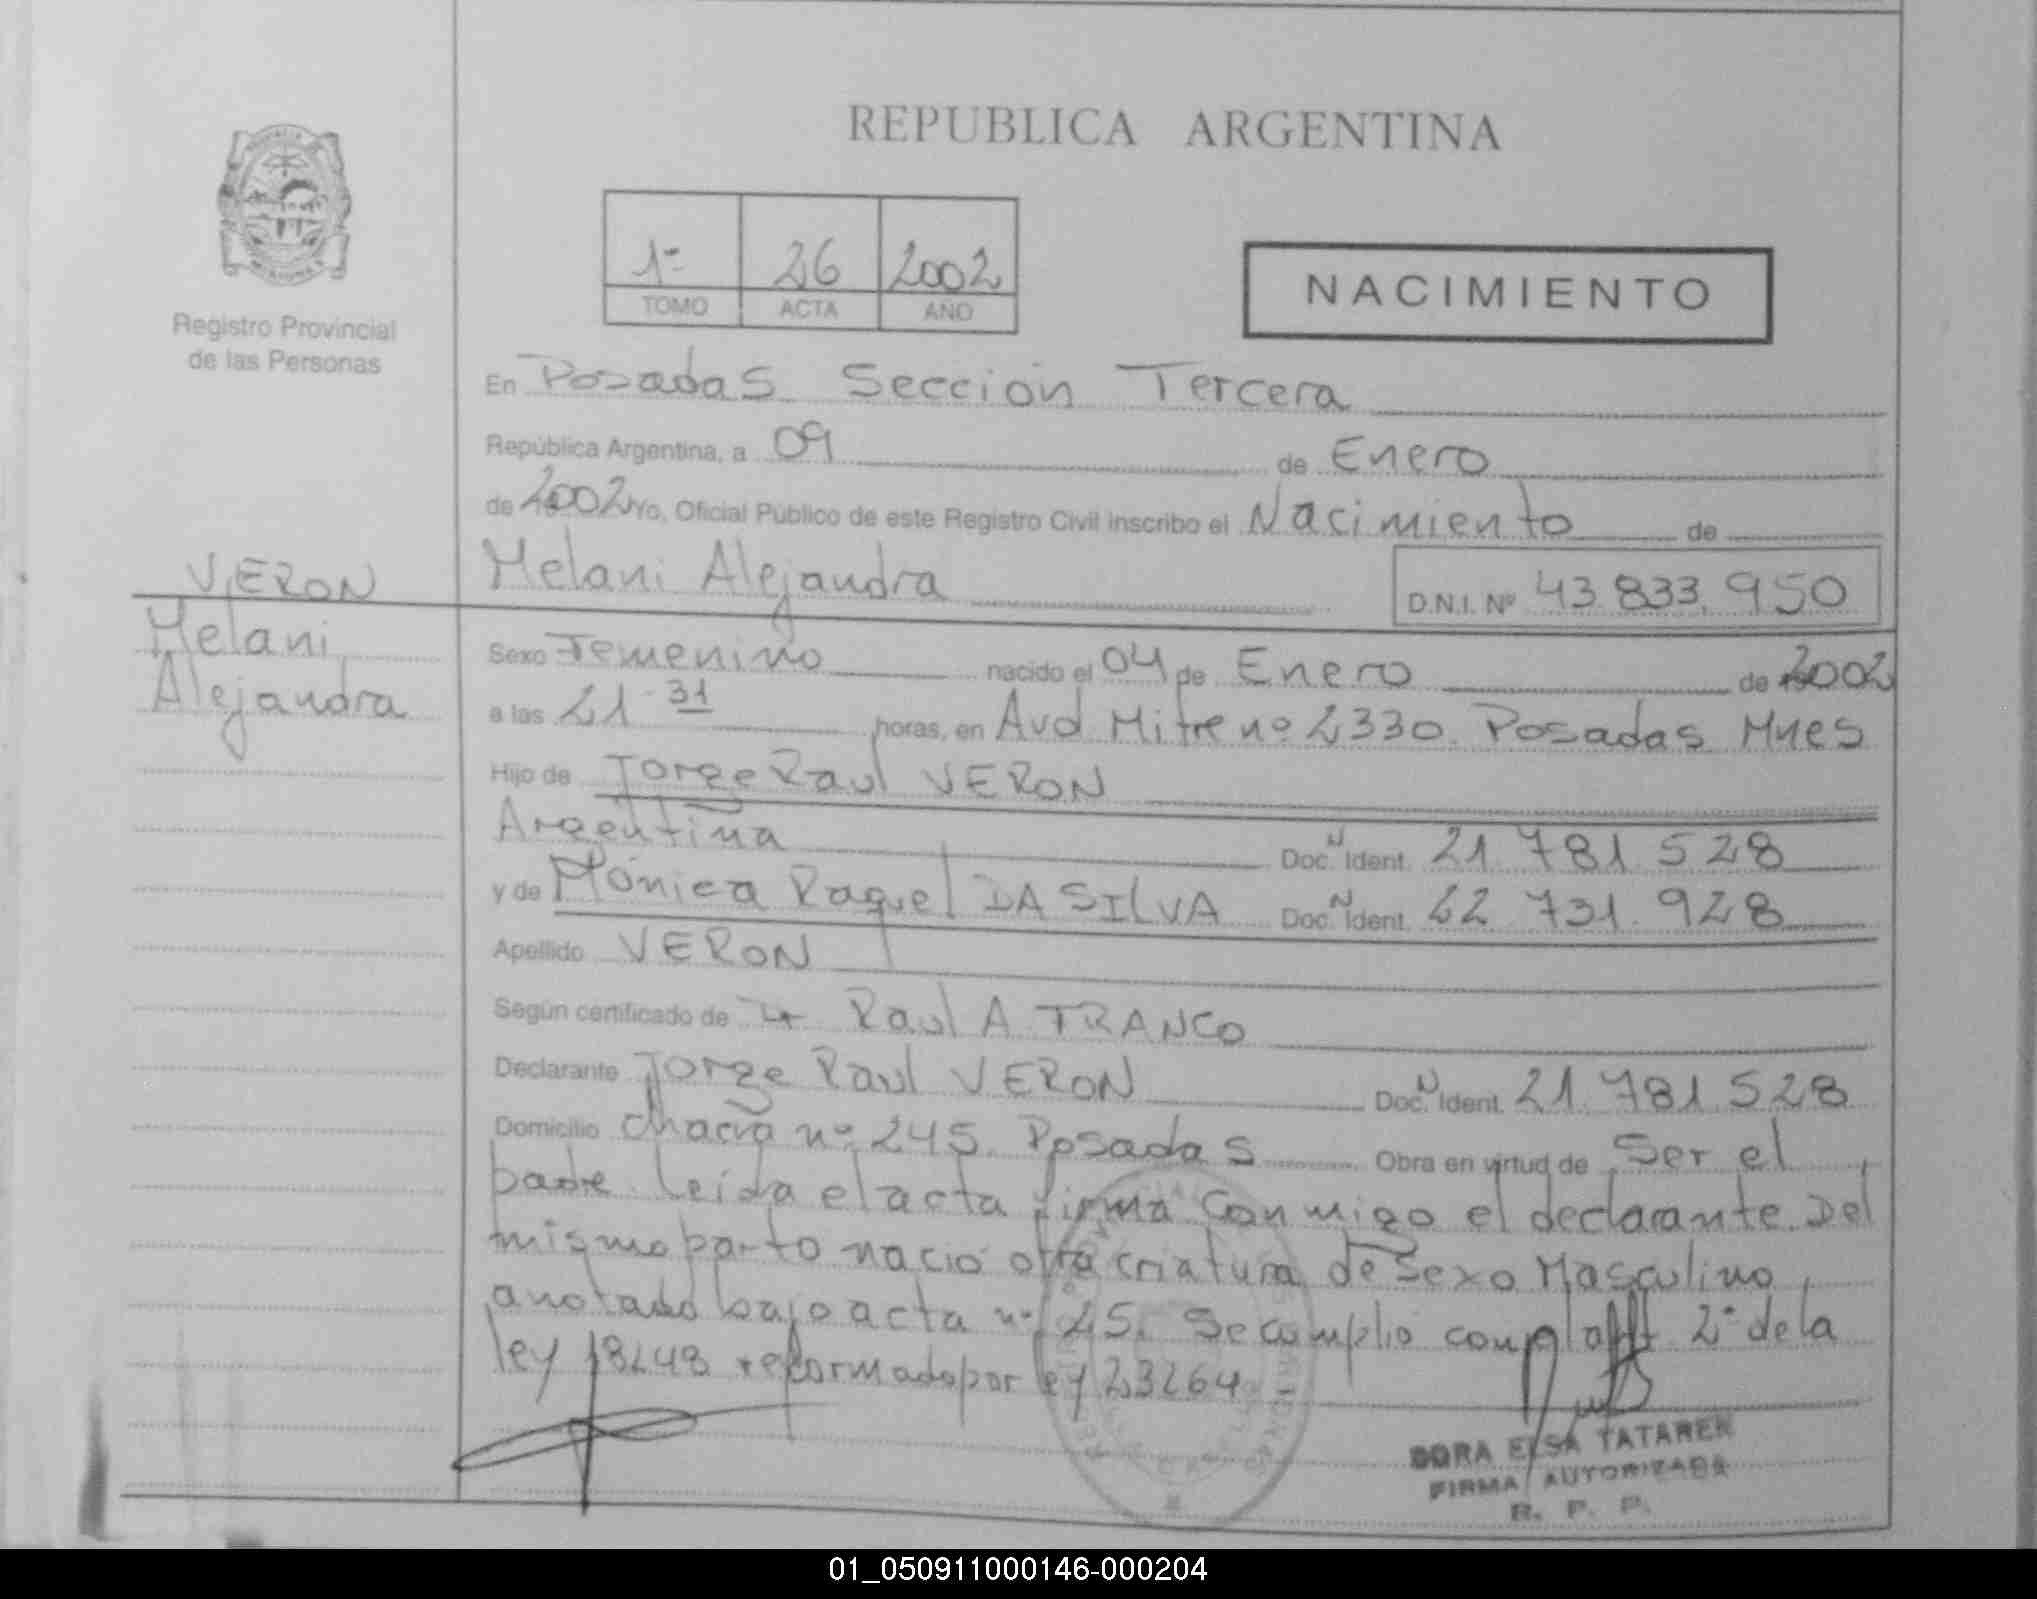 REPUBLICA ARGENTINA
Registro Provincial
de las Personas
1º 26 2002
TOMO ACTA AÑO
NACIMIENTO
En Posadas Sección Tercera
República Argentina, a 09 de Enero
de 2002 Yo, Oficial Público de este Registro Civil inscribo el Nacimiento de
VERON
Melani Alejandra D.N.I. Nº 43.833.950
Melani
Alejandra
Sexo Femenino nacido el 04 de Enero de 2002
a las 21 31 horas, en Avd Mitre nº 2330. Posadas Mnes
Hijo de Jorge Raul VERON
Argentina Doc. N Ident. 21.781.528
y de Mónica Raquel DA SILVA Doc. N Ident. 22.731.928
Apellido VERON
Según certificado de Dr Raul A. FRANCO
Declarante Jorge Raul VERON Doc. N Ident. 21.781.528
Domicilio chacra nº 245. Posadas Obra en virtud de Ser el
padre. Leída el acta firma conmigo el declarante. Del
mismo parto nació otra criatura de Sexo Masculino,
anotado bajo acta nº 25. Se cumplió con el art 2º de la
ley 18248 reformado por ley 23264
DORA ELSA TATAREN
FIRMA AUTORIZADA
R. P. P.
01_050911000146-000204